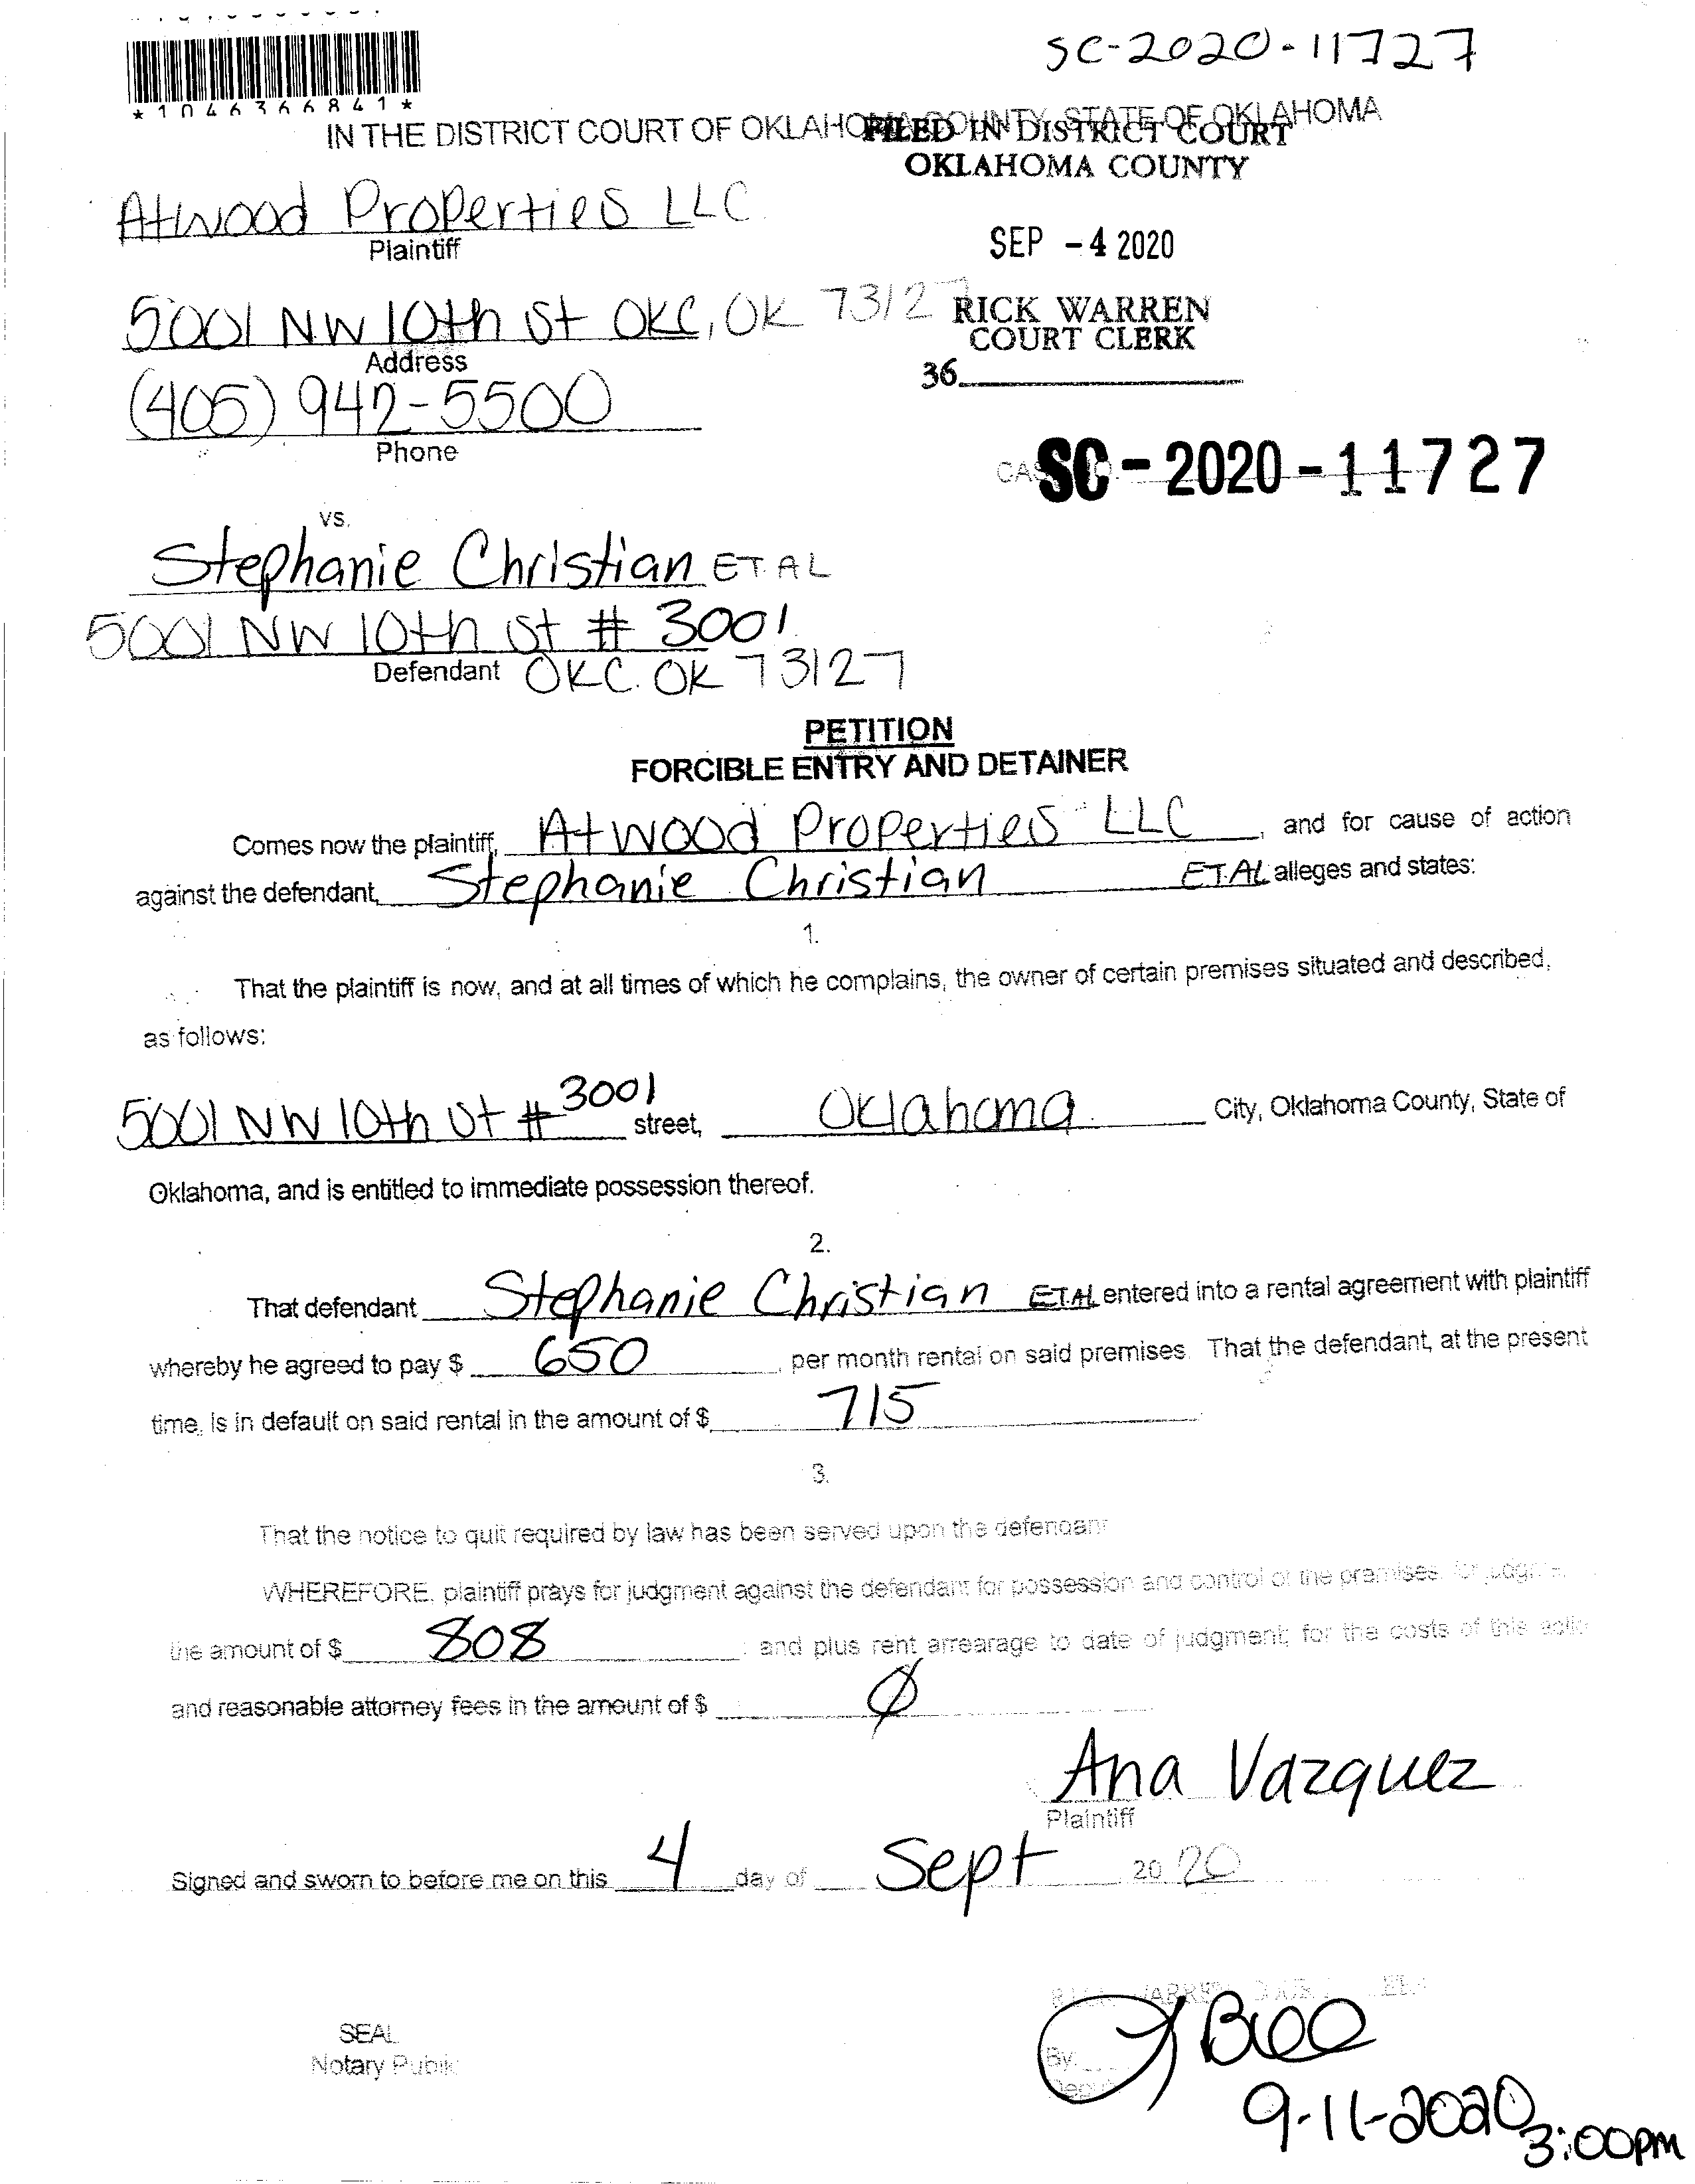 SC-2020-11727
*1046366841*
IN THE DISTRICT COURT OF OKLAHOMA COUNTY, STATE OF OKLAHOMA
FILED IN DISTRICT COURT
OKLAHOMA COUNTY
Atwood Properties LLC
Plaintiff
SEP -4 2020
5001 NW 10th St OKC, OK 73127
RICK WARREN
COURT CLERK
Address
36
(405) 942-5500
Phone
SC-2020-11727
vs.
Stephanie Christian ET AL
5001 NW 10th St # 3001
Defendant OKC. OK 73127
PETITION
FORCIBLE ENTRY AND DETAINER
Comes now the plaintiff, Atwood Properties LLC, and for cause of action
against the defendant, Stephanie Christian ET.AL alleges and states:
1.
That the plaintiff is now, and at all times of which he complains, the owner of certain premises situated and described,
as follows:
5001 NW 10th St # 3001 street, Oklahoma City, Oklahoma County, State of
Oklahoma, and is entitled to immediate possession thereof.
2.
That defendant Stephanie Christian ET.AL entered into a rental agreement with plaintiff
whereby he agreed to pay $ 650, per month rental on said premises. That the defendant, at the present
time, is in default on said rental in the amount of $ 715
3.
That the notice to quit required by law has been served upon the defendant
WHEREFORE, plaintiff prays for judgment against the defendant for possession and control of the premises, for
the amount of $ 808; and plus rent arrearage to date of judgment; for the costs of this
and reasonable attorney fees in the amount of $ Ø
Ana Vazquez
Plaintiff
Signed and sworn to before me on this 4 day of Sept 2020
SEAL
Notary Public
By:
9-11-2020
3:00pm